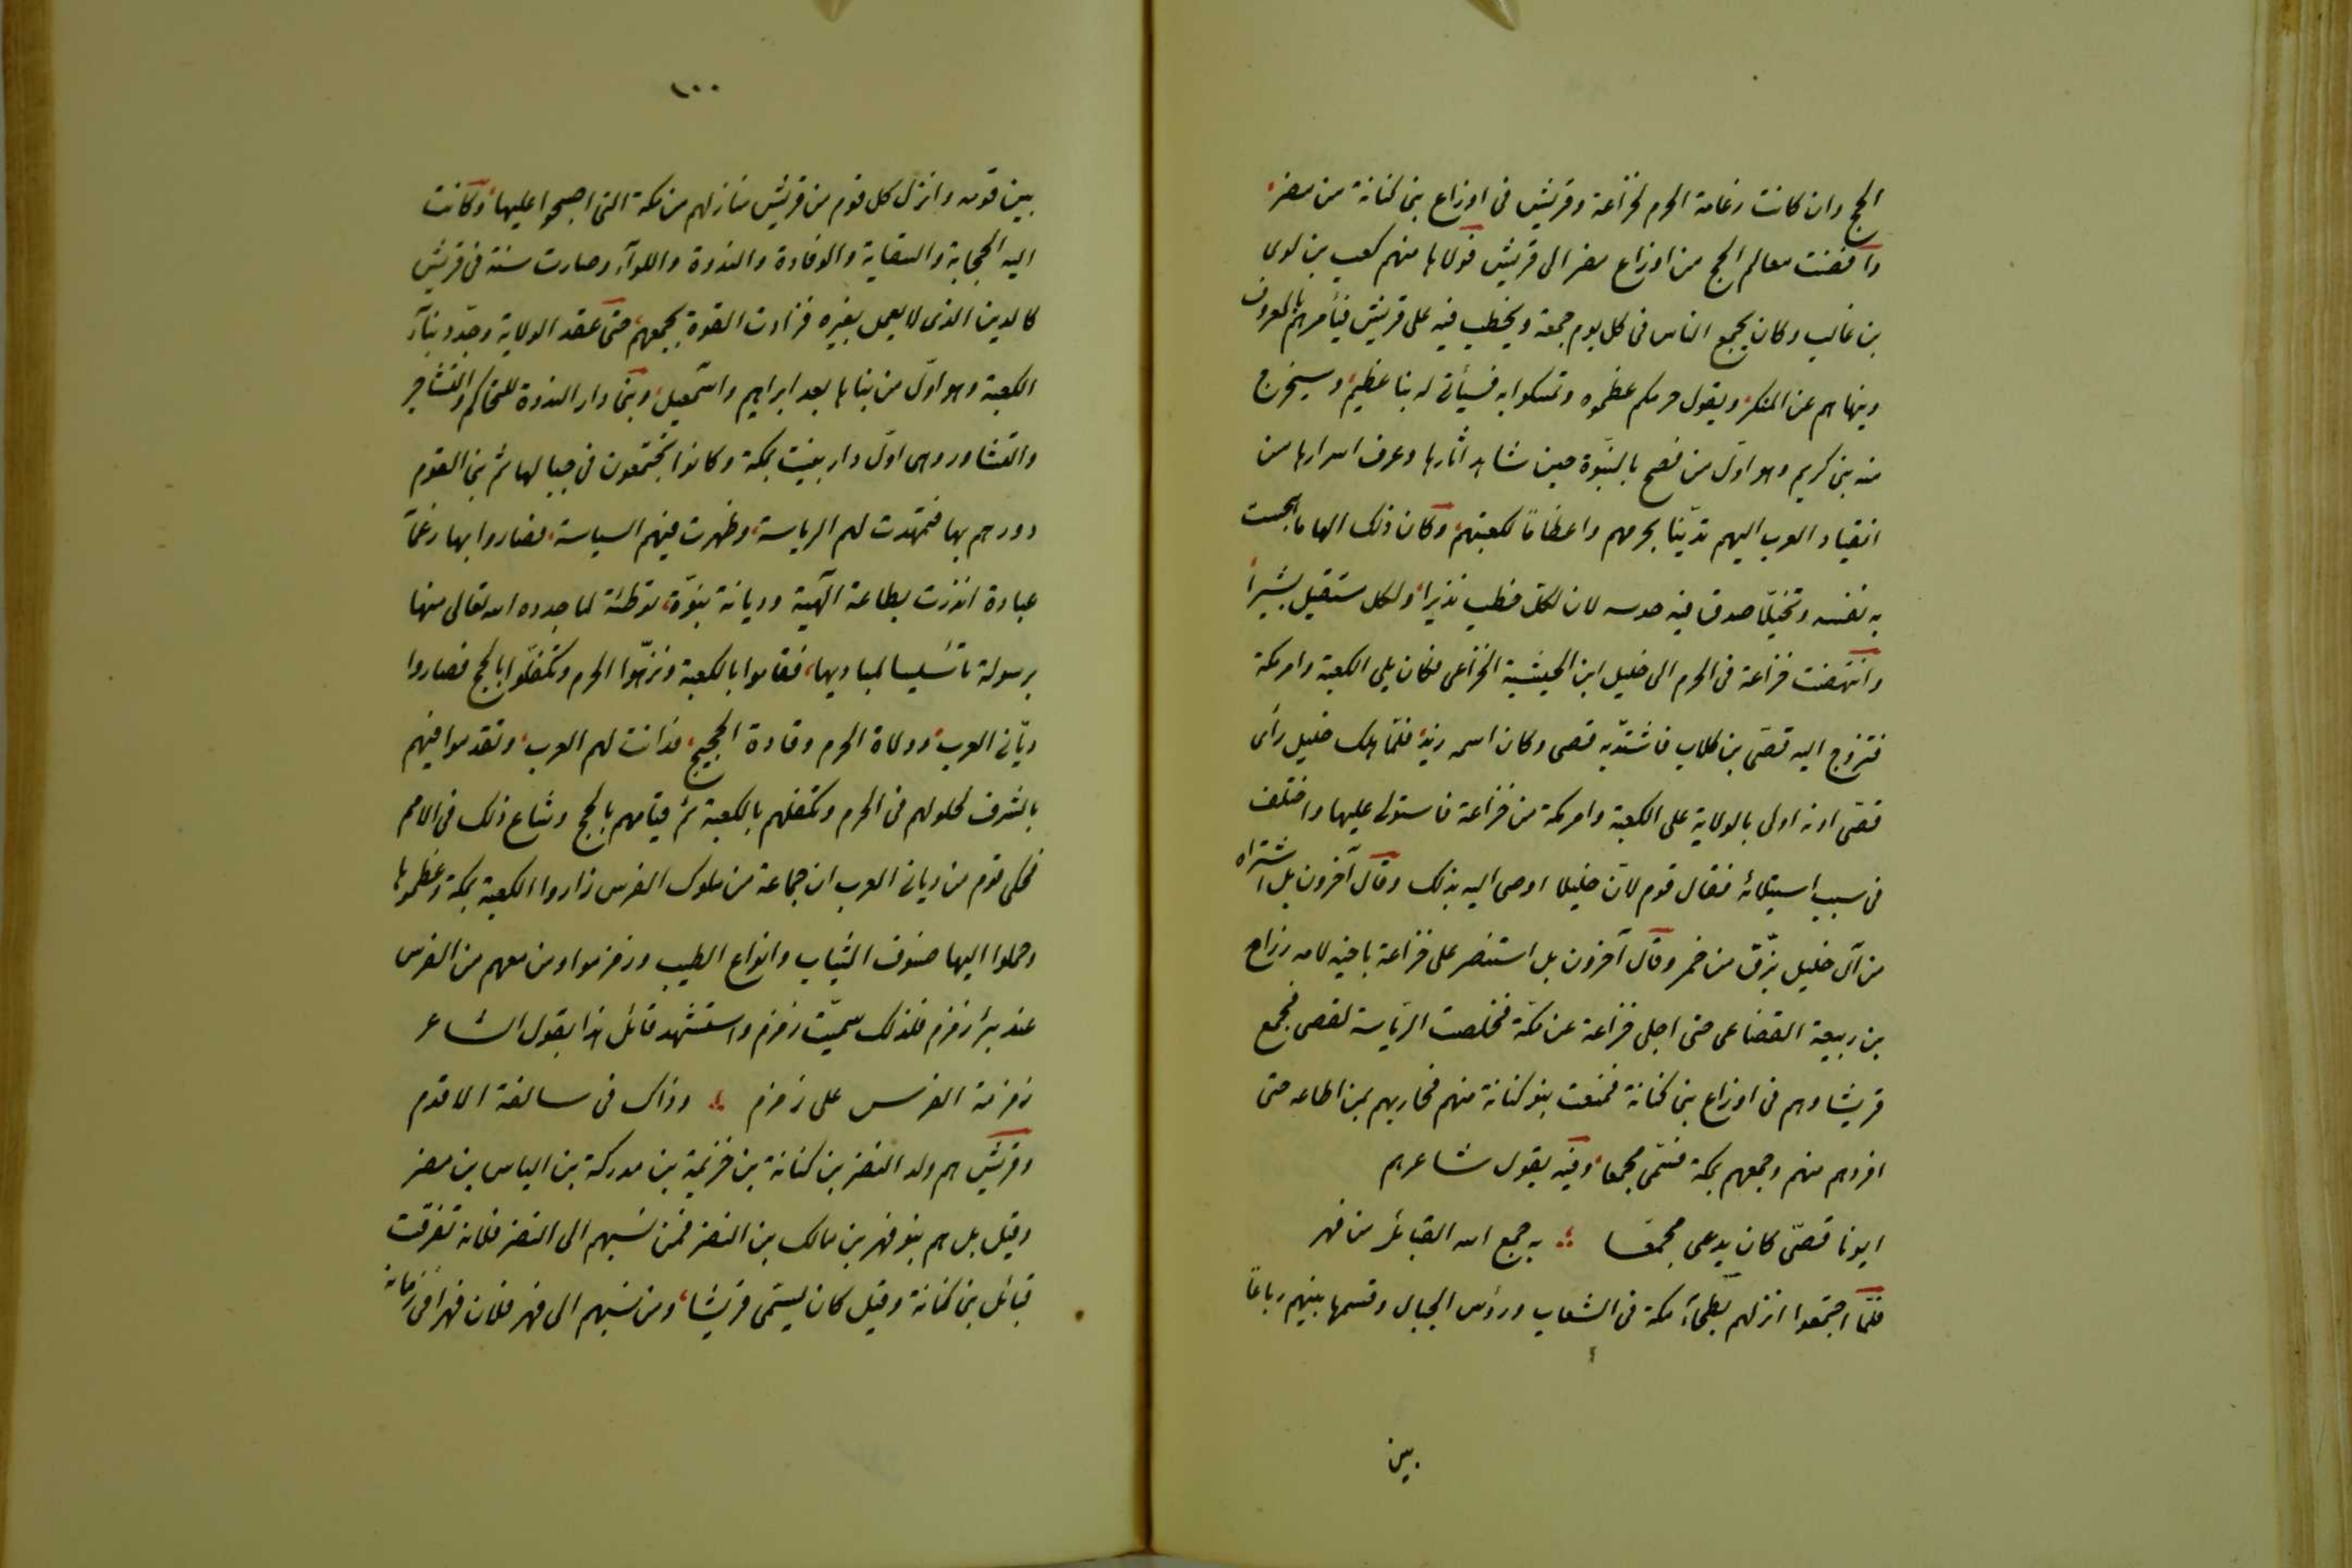 الحج وان كانت زعامة الحرم لخزاعة وقريش فى اوزاع بنى كنانة من مضر
وافضت معالم الحج من اوزاع مضر الى قريش فولاها منهم كعب بن لوى
بن غالب وكان يجمع الناس فى كل يوم جمعة ويخطب فيه على قريش فيأمرهم بالمعروف
وينهاهم عن المنكر ويقول حرمكم عظموه وتمسكوا به فسيأتى له بنا عظيم وسيخرج
منه بنى كريم وهو اول من فصح بالنبوة حين شاهد آثارها وعرف اسرارها من
انقياد العرب اليهم تدينا بحرمهم واعظاما لكعبتهم وكان ذلك الهاما هجست
به نفسه وتخيلا صدق فيه حدسه لان لكل خطب نذيرا ولكل مستقبل بشيرا
وانتهضت خزاعة فى الحرم الى خليل ابن الحبشية الخزاعى فكان يلى الكعبة وامر مكة
فتزوج اليه قصى بن كلاب فاشتد به قصى وكان اسمه زيد فلما هلك خليل رأى
قصى انه اولى بالولاية على الكعبة وامر مكة من خزاعة فاستولى عليها واختلف
فى سبب استيلائه فقال قوم لان خليلا اوصى اليه بذلك وقال آخرون بل اشتراه
من آل خليل بزق من خمر وقال آخرون بل استنصر على خزاعة باخيه لامه رزاح
بن ربيعة القضاعى حتى اجلى خزاعة عن مكة فخلصت الرياسة لقصى فجمع
قريشا وهم فى اوزاع بنى كنانة فمنعت بنو كنانة منهم فحاربهم بمن اطاعه حتى
افردهم منهم وجمعهم بمكة فسمى مجمعا وفيه يقول شاعرهم
ابونا قصى كان يدعى مجمعا به جمع الله القبائل من فهر
فلما اجتمعوا انزلهم بطحاء مكة فى الشعاب ورؤس الجبال وقسمها بينهم رباعا
بين
١٠٠
بين قومه وانزل كل قوم من قريش منازلهم من مكة التى اصبحوا عليها وكانت
اليه الحجابة والسقاية والوفادة والندوة واللواء وصارت سنة فى قريش
كالدين الذى لا يعمل بغيره فزادت القوة بجمعهم حتى عقد الولاية وجدد بناء
الكعبة وهو اول من بناها بعد ابراهيم واسمعيل وبنى دار الندوة للتحاكم والتشاجر
والتشاور وهى اول دار بنيت بمكة وكانوا يجتمعون فى جبالها ثم بنى القوم
دورهم بها فتمهدت لهم الرياسة وظهرت فيهم السياسة فصاروا بها زعماء
عبادة انذرت بطاعة آلهية وديانة نبوة توطئة لما جدده الله تعالى منها
برسوله تأسيسا لمباديها فقاموا بالكعبة ونزهوا الحرم وتكفلوا بالحج فصاروا
ديانى العرب وولاة الحرم وقادة الحجيج فدانت لهم العرب وتقدموا فيهم
بالشرف لحلولهم فى الحرم وتكفلهم بالكعبة ثم قيامهم بالحج وشاع ذلك فى الامم
فحكى قوم من ديانى العرب ان جماعة من ملوك الفرس زاروا الكعبة بمكة وعظموها
وحملوا اليها صنوف الثياب وانواع الطيب وزمزموا ومن معهم من الفرس
عند بئر زمزم فلذلك سميت زمزم واستشهد قائل هذا بقول الشاعر
زمزمة الفرس على زمزم وذاك فى سالفة الاقدم
وقريش هم ولد النضر بن كنانة بن خزيمة بن مدركة بن الياس بن مضر
وقيل بل هم بنو فهر بن مالك بن النضر فمن نسبهم الى النضر فلانه تفرقت
قبائل بنى كنانة وقيل كان يسمى قريشا ومن نسبهم الى فهر فلان فهرا فى زمانه